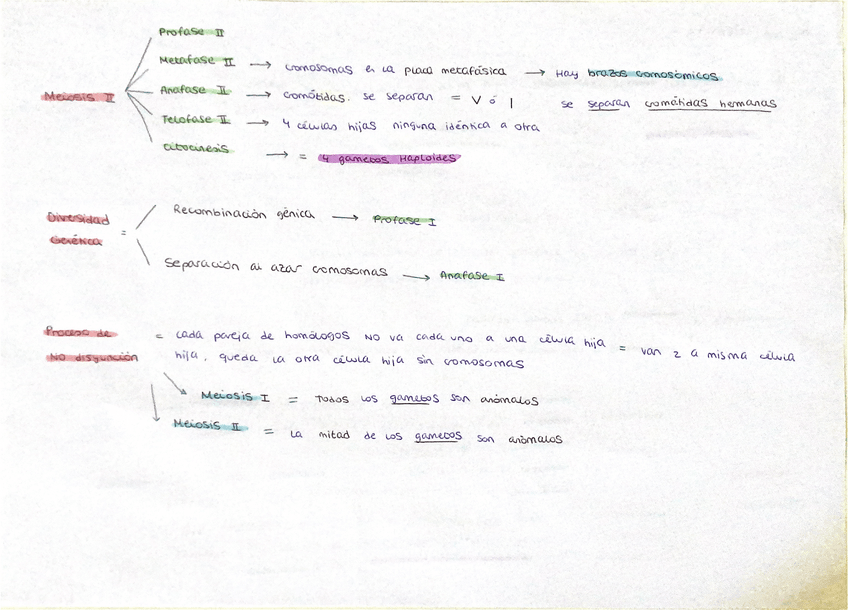 Profase II
Metafase II → cromosomas en la placa metafásica → Hay brazos cromosómicos
Meiosis II
Anafase II → cromátidas se separan = V ó | se separan cromátidas hermanas
Telofase II → 4 células hijas ninguna idéntica a otra
Citocinesis → = 4 gametos Haploides
Recombinación génica → Profase I
Diversidad
Genética =
Separación al azar cromosomas → Anafase I
Proceso de = cada pareja de homólogos NO va cada uno a una célula hija = van 2 a misma célula
NO disyunción hija, queda la otra célula hija sin cromosomas
Meiosis I = Todos los gametos son anómalos
Meiosis II = la mitad de los gametos son anómalos